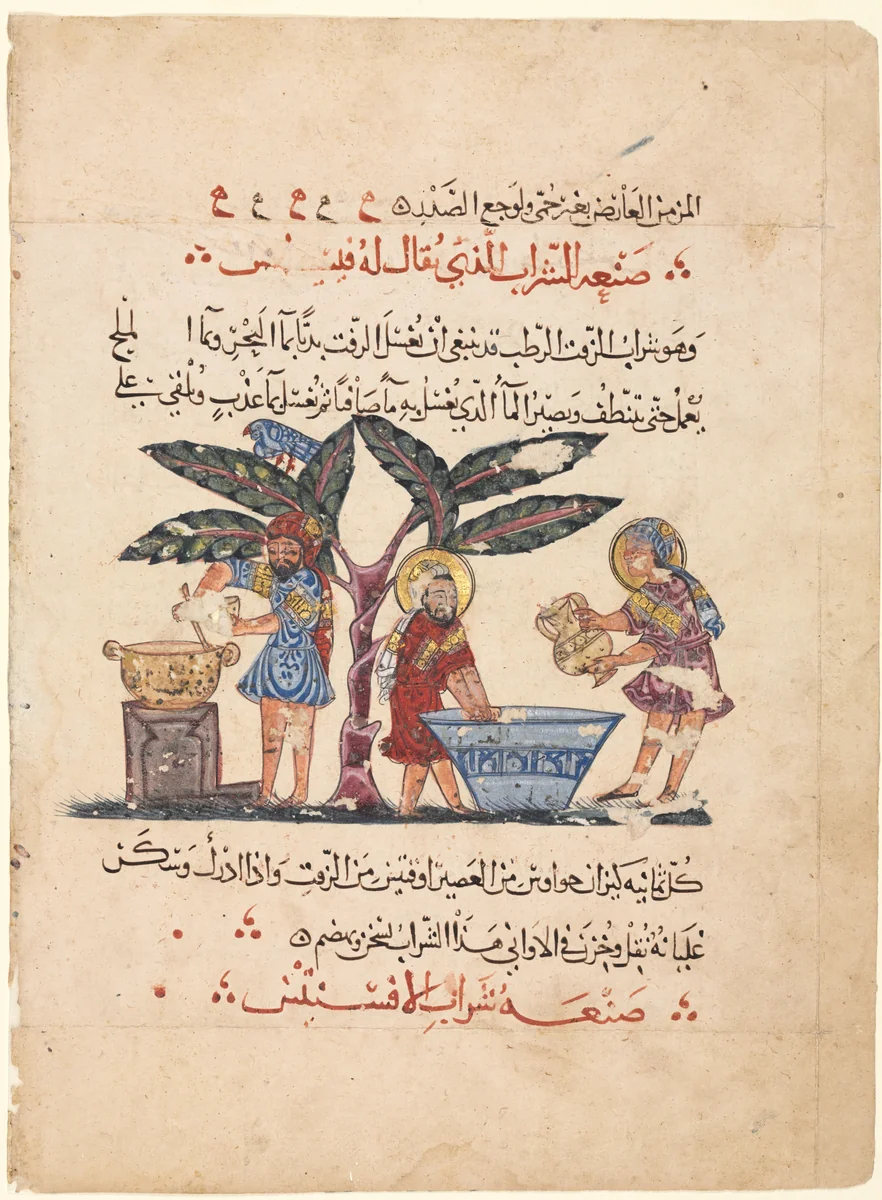 المزمن العارض بغير حمى ولوجع الصدر ه ع ع ع ع ع
صنعه الشراب الذي يقال له
وهو شراب الزفت الرطب قد ينبغي أن يغسل الزفت بديا بماء البحر وبماء الملح
يعمل حتى ينظف ويصير الماء الذي يغسل به ماءً صافياً ثم يغسل بماء عذب ويلقى على
كل ثمانيه كيزان حواوس من العصير اوقيتين من الزفت واذا ادرك وسكن
غليانه نقل وخزن في الاواني هذا الشراب يسخن ويهضم ه
صنعه شراب الافسنتين